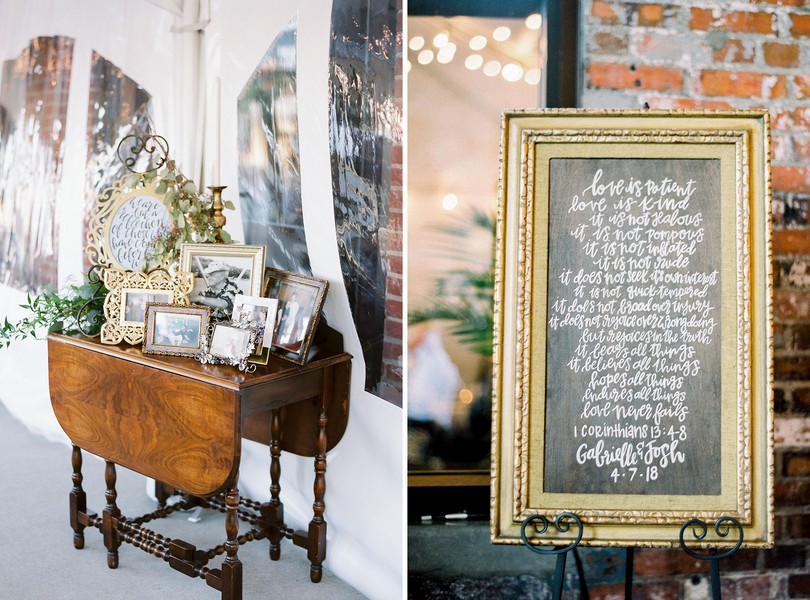 love is patient
love is kind
it is not jealous
it is not pompous
it is not inflated
it is not rude
it does not seek it's own interest
it is not quick-tempered
it does not brood over injury
it does not rejoice over wrongdoing
but rejoices in the truth
it bears all things
it believes all things
hopes all things
endures all things
love never fails
1 Corinthians 13:4-8
Gabrielle & Josh
4-7-18